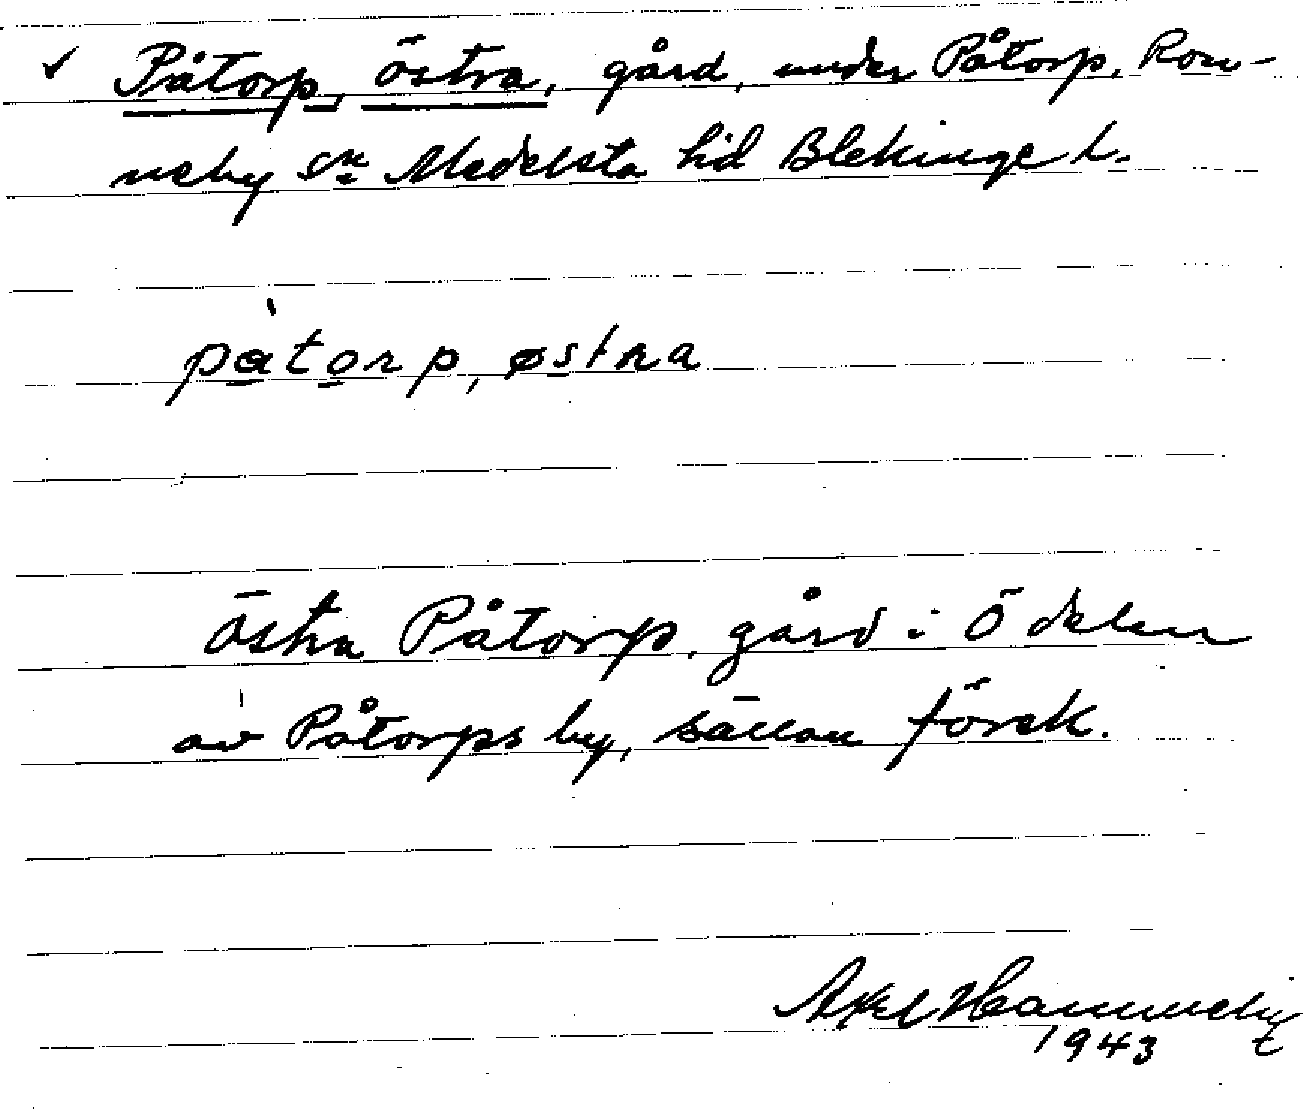 ✓ Påtorp, östra, gård, under Påtorp, Ron-
neby sn Medelsta hd Blekinge l.
påtorp, østra
Östra Påtorp, gård i Ö delen
av Påtorps by, sällan förek.
Axel
1943